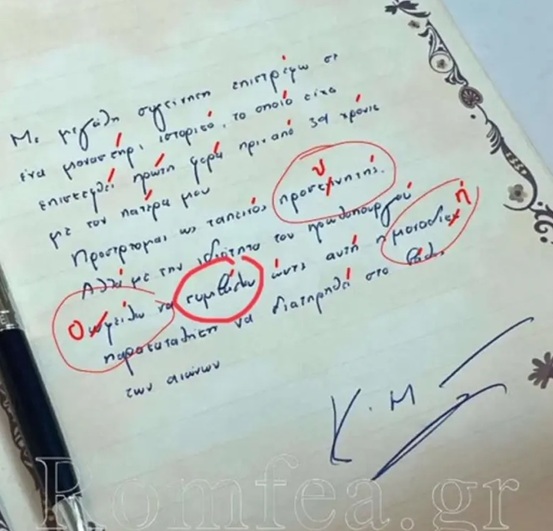 Με μεγάλη συγκίνηση επιστρέφω σε
ένα μοναστήρι ιστορικό, το οποίο είχα
επισκεφθεί πρώτη φορά πριν από χρόνια
με τον πατέρα μου
υ
Προσέρχομαι ως ταπεινός προσκηνητής.
Αλλά με την ιδιότητα του πρωθυπουργού
ή
Ο
ωφείλω να συμβάλω ώστε αυτή η
παρακαταθήκη να διατηρηθεί στο
των αιώνων
Κ.Μ
Romfea.gr